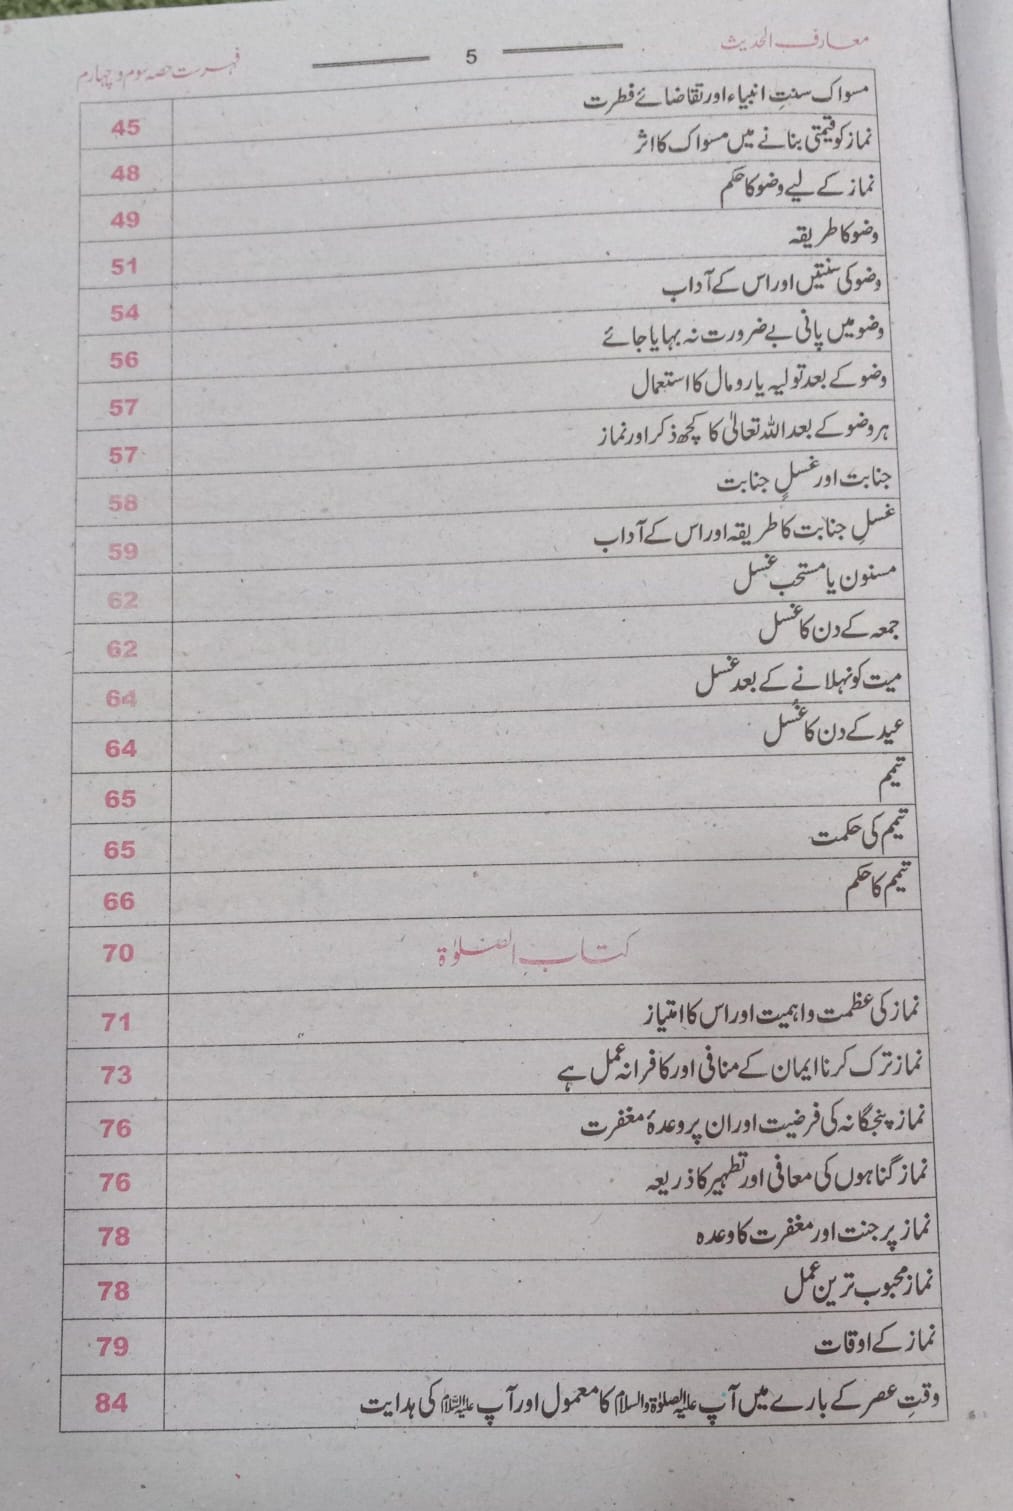 معارف الحدیث 5 فہرست حصہ سوم و چہارم
مسواک سنتِ انبیاء اور تقاضائے فطرت 45
نماز کو قیمتی بنانے میں مسواک کا اثر 48
نماز کے لیے وضو کا حکم 49
وضو کا طریقہ 51
وضو کی سنتیں اور اس کے آداب 54
وضو میں پانی بے ضرورت نہ بہایا جائے 56
وضو کے بعد تولیہ یا رومال کا استعمال 57
ہر وضو کے بعد اللہ تعالیٰ کا کچھ ذکر اور نماز 57
جنابت اور غسلِ جنابت 58
غسلِ جنابت کا طریقہ اور اس کے آداب 59
مسنون یا مستحب غسل 62
جمعہ کے دن کا غسل 62
میت کو نہلانے کے بعد غسل 64
عید کے دن کا غسل 64
تیمم 65
تیمم کی حکمت 65
تیمم کا حکم 66
کتاب الصلوٰۃ 70
نماز کی عظمت و اہمیت اور اس کا امتیاز 71
نماز ترک کرنا ایمان کے منافی اور کافرانہ عمل ہے 73
نماز پنجگانہ کی فرضیت اور ان پر وعدۂ مغفرت 76
نماز گناہوں کی معافی اور تطہیر کا ذریعہ 76
نماز پر جنت اور مغفرت کا وعدہ 78
نماز محبوب ترین عمل 78
نماز کے اوقات 79
وقتِ عصر کے بارے میں آپ علیہ الصلوٰۃ والسلام کا معمول اور آپ علیہ السّلام کی ہدایت 84